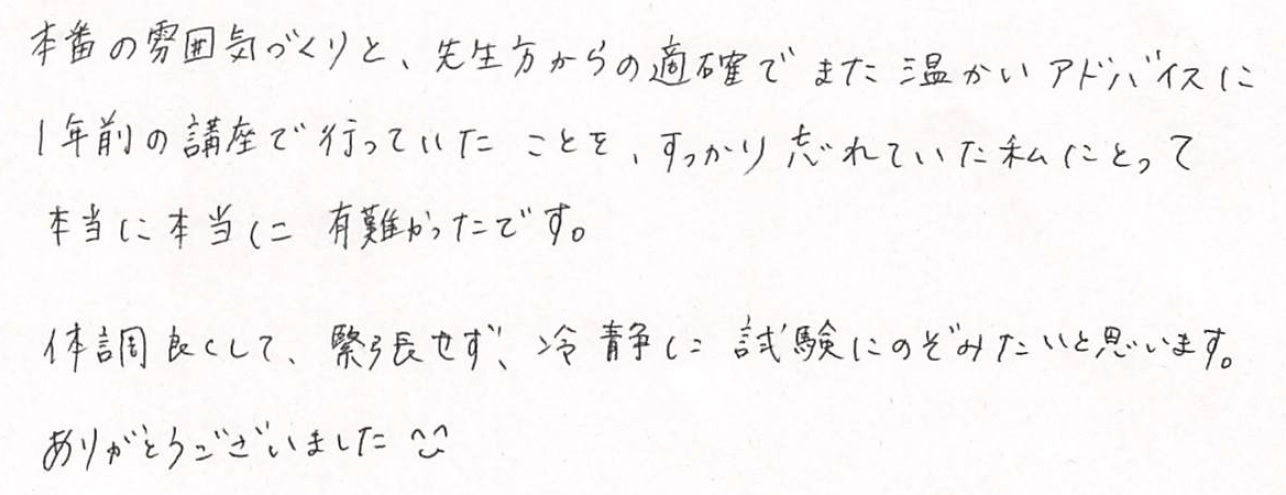 本番の雰囲気づくりと、先生方からの適確でまた温かいアドバイスに
1年前の講座で行っていたことを、すっかり忘れていた私にとって
本当に本当に有難かったです。
体調良くして、緊張せず、冷静に試験にのぞみたいと思います。
ありがとうございました